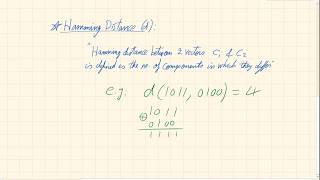 * Hamming Distance (d):
"Hamming distance between 2 vectors C1 & C2
is defined as the no of components in which they differ"
e.g: d(1011, 0100) = 4
1011
⊕ 0100
1111